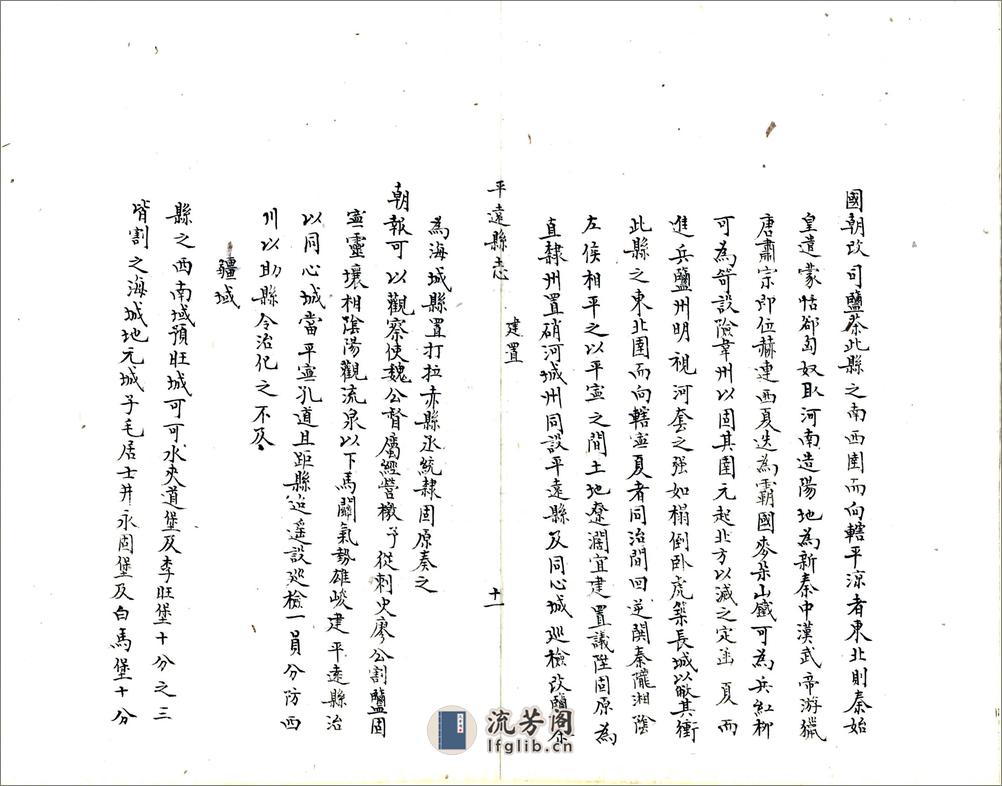 國朝改司鹽茶此縣之南西圉而向轄平涼者東北則秦始
皇遣蒙恬郤匈奴取河南造陽地為新秦中漢武帝游獵
唐肅宗即位赫連西夏迭為霸國麥朵山鐵可為兵紅柳
可為笴設險韋州以固其圉元起北方以滅之定寧夏而
進兵鹽州明視河套之强如榻倒卧虎築長城以敝其衝
此縣之東北圉而向轄寧夏者同治間回逆閧秦隴湘陰
左侯相平之以平寧之間土地遼濶宜建置議陞固原為
直隸州置硝河城州同設平遠縣及同心城巡檢改鹽
平遠縣志
建置
十一
為海城縣置打拉赤縣丞統隸固原奏之
朝報可以觀察使魏公督屬經營檄予從刺史廖公割鹽固
寧靈壤相陰陽觀流泉以下馬關氣勢雄峻建平遠縣治
以同心城當平寧孔道且距縣迢遥設巡檢一員分防西
川以助縣令治化之不及
疆域
縣之西南域預旺城可可水夾道堡及李旺堡十分之三
皆割之海城地元城子毛居士井永固堡及白馬堡十分
流芳阁
lfglib.cn